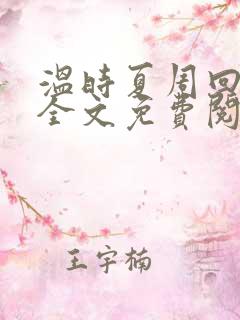 温时夏周回
全文免費閱
王宇楠